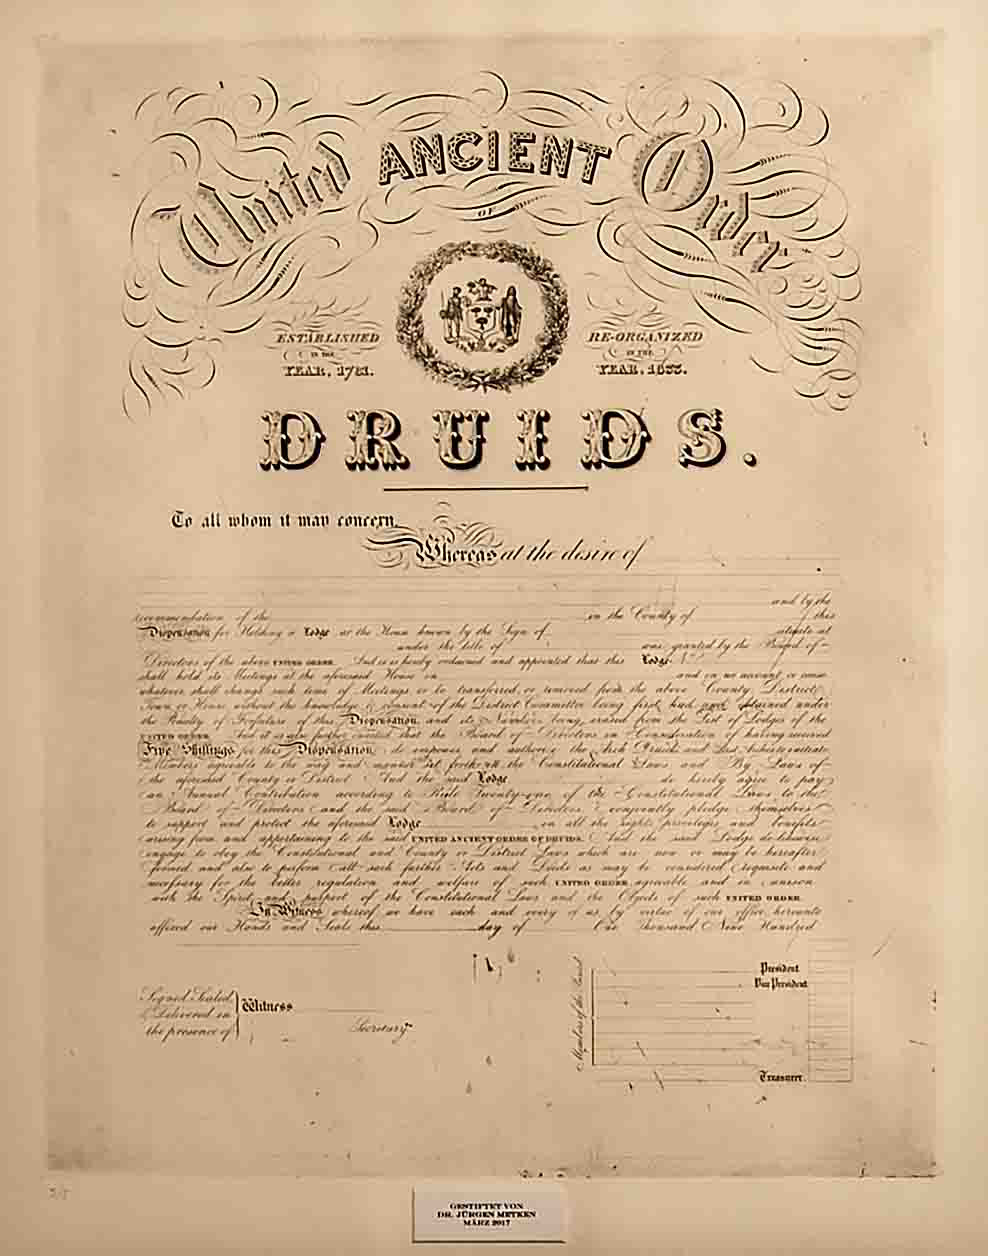 United ANCIENT Order
OF
ESTABLISHED
IN THE
YEAR, 1781.
RE-ORGANIZED
IN THE
YEAR, 1833.
DRUIDS.
To all whom it may concern,
Whereas at the desire of
and by the
recommendation of the in the County of this
Dispensation for Holding a Lodge at the House known by the Sign of situate at
under the title of was granted by the Board of
Directors of the above UNITED ORDER. And it is hereby ordained and appointed that this Lodge N
shall hold its Meetings at the aforesaid House on and on no account or cause
whatever shall change such time of Meetings or be transferred or removed from the above County District
Town or House without the knowledge & consent of the District Committee being first had and obtained under
the Penalty of Forfeiture of this Dispensation and its Number being erased from the List of Lodges of the
UNITED ORDER. And it is also further enacted that the Board of Directors in Consideration of having received
Five Shillings for this Dispensation do empower and authorize the Arch Druid and Past Arches to initiate
Members agreeable to the way and manner set forth in the Constitutional Laws and By Laws of
the aforesaid County or District And the said Lodge do hereby agree to pay
an Annual Contribution according to Rule Twenty-one of the Constitutional Laws to the
Board of Directors and the said Board of Directors conjointly pledge themselves
to support and protect the aforesaid Lodge in all the rights privileges and benefits
arising from and appertaining to the said UNITED ANCIENT ORDER OF DRUIDS. And the said Lodge do likewise
engage to obey the Constitutional and County or District Laws which are now or may be hereafter
formed and also to perform all such further Acts and Deeds as may be considered requisite and
necessary for the better regulation and welfare of such UNITED ORDER agreeable and in unison
with the Spirit and purport of the Constitutional Laws and the Objects of such UNITED ORDER
In Witness whereof we have each and every of us by virtue of our office hereunto
affixed our Hands and Seals this day of One Thousand Nine Hundred
Signed Sealed
& Delivered in
the presence of
Witness
Secretary
Members of the Board
President
Vice President
Treasurer
GESTIFTET VON
DR. JÜRGEN METKEN
MÄRZ 2017